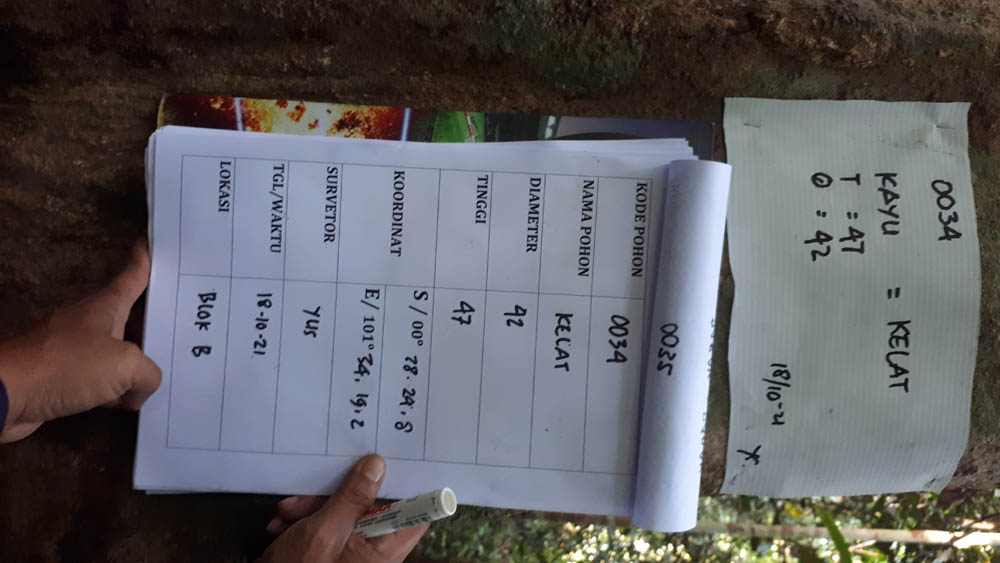 0034
KAYU = KELAT
T = 47
Ø = 42
18/10-21
0035
KODE POHON 0034
NAMA POHON KELAT
DIAMETER 42
TINGGI 47
KOORDINAT
S / 00° 28. 29. 8
E/ 101° 34. 19. 2
SURVETOR YUS
TGL/WAKTU 18-10-21
LOKASI BLOK B